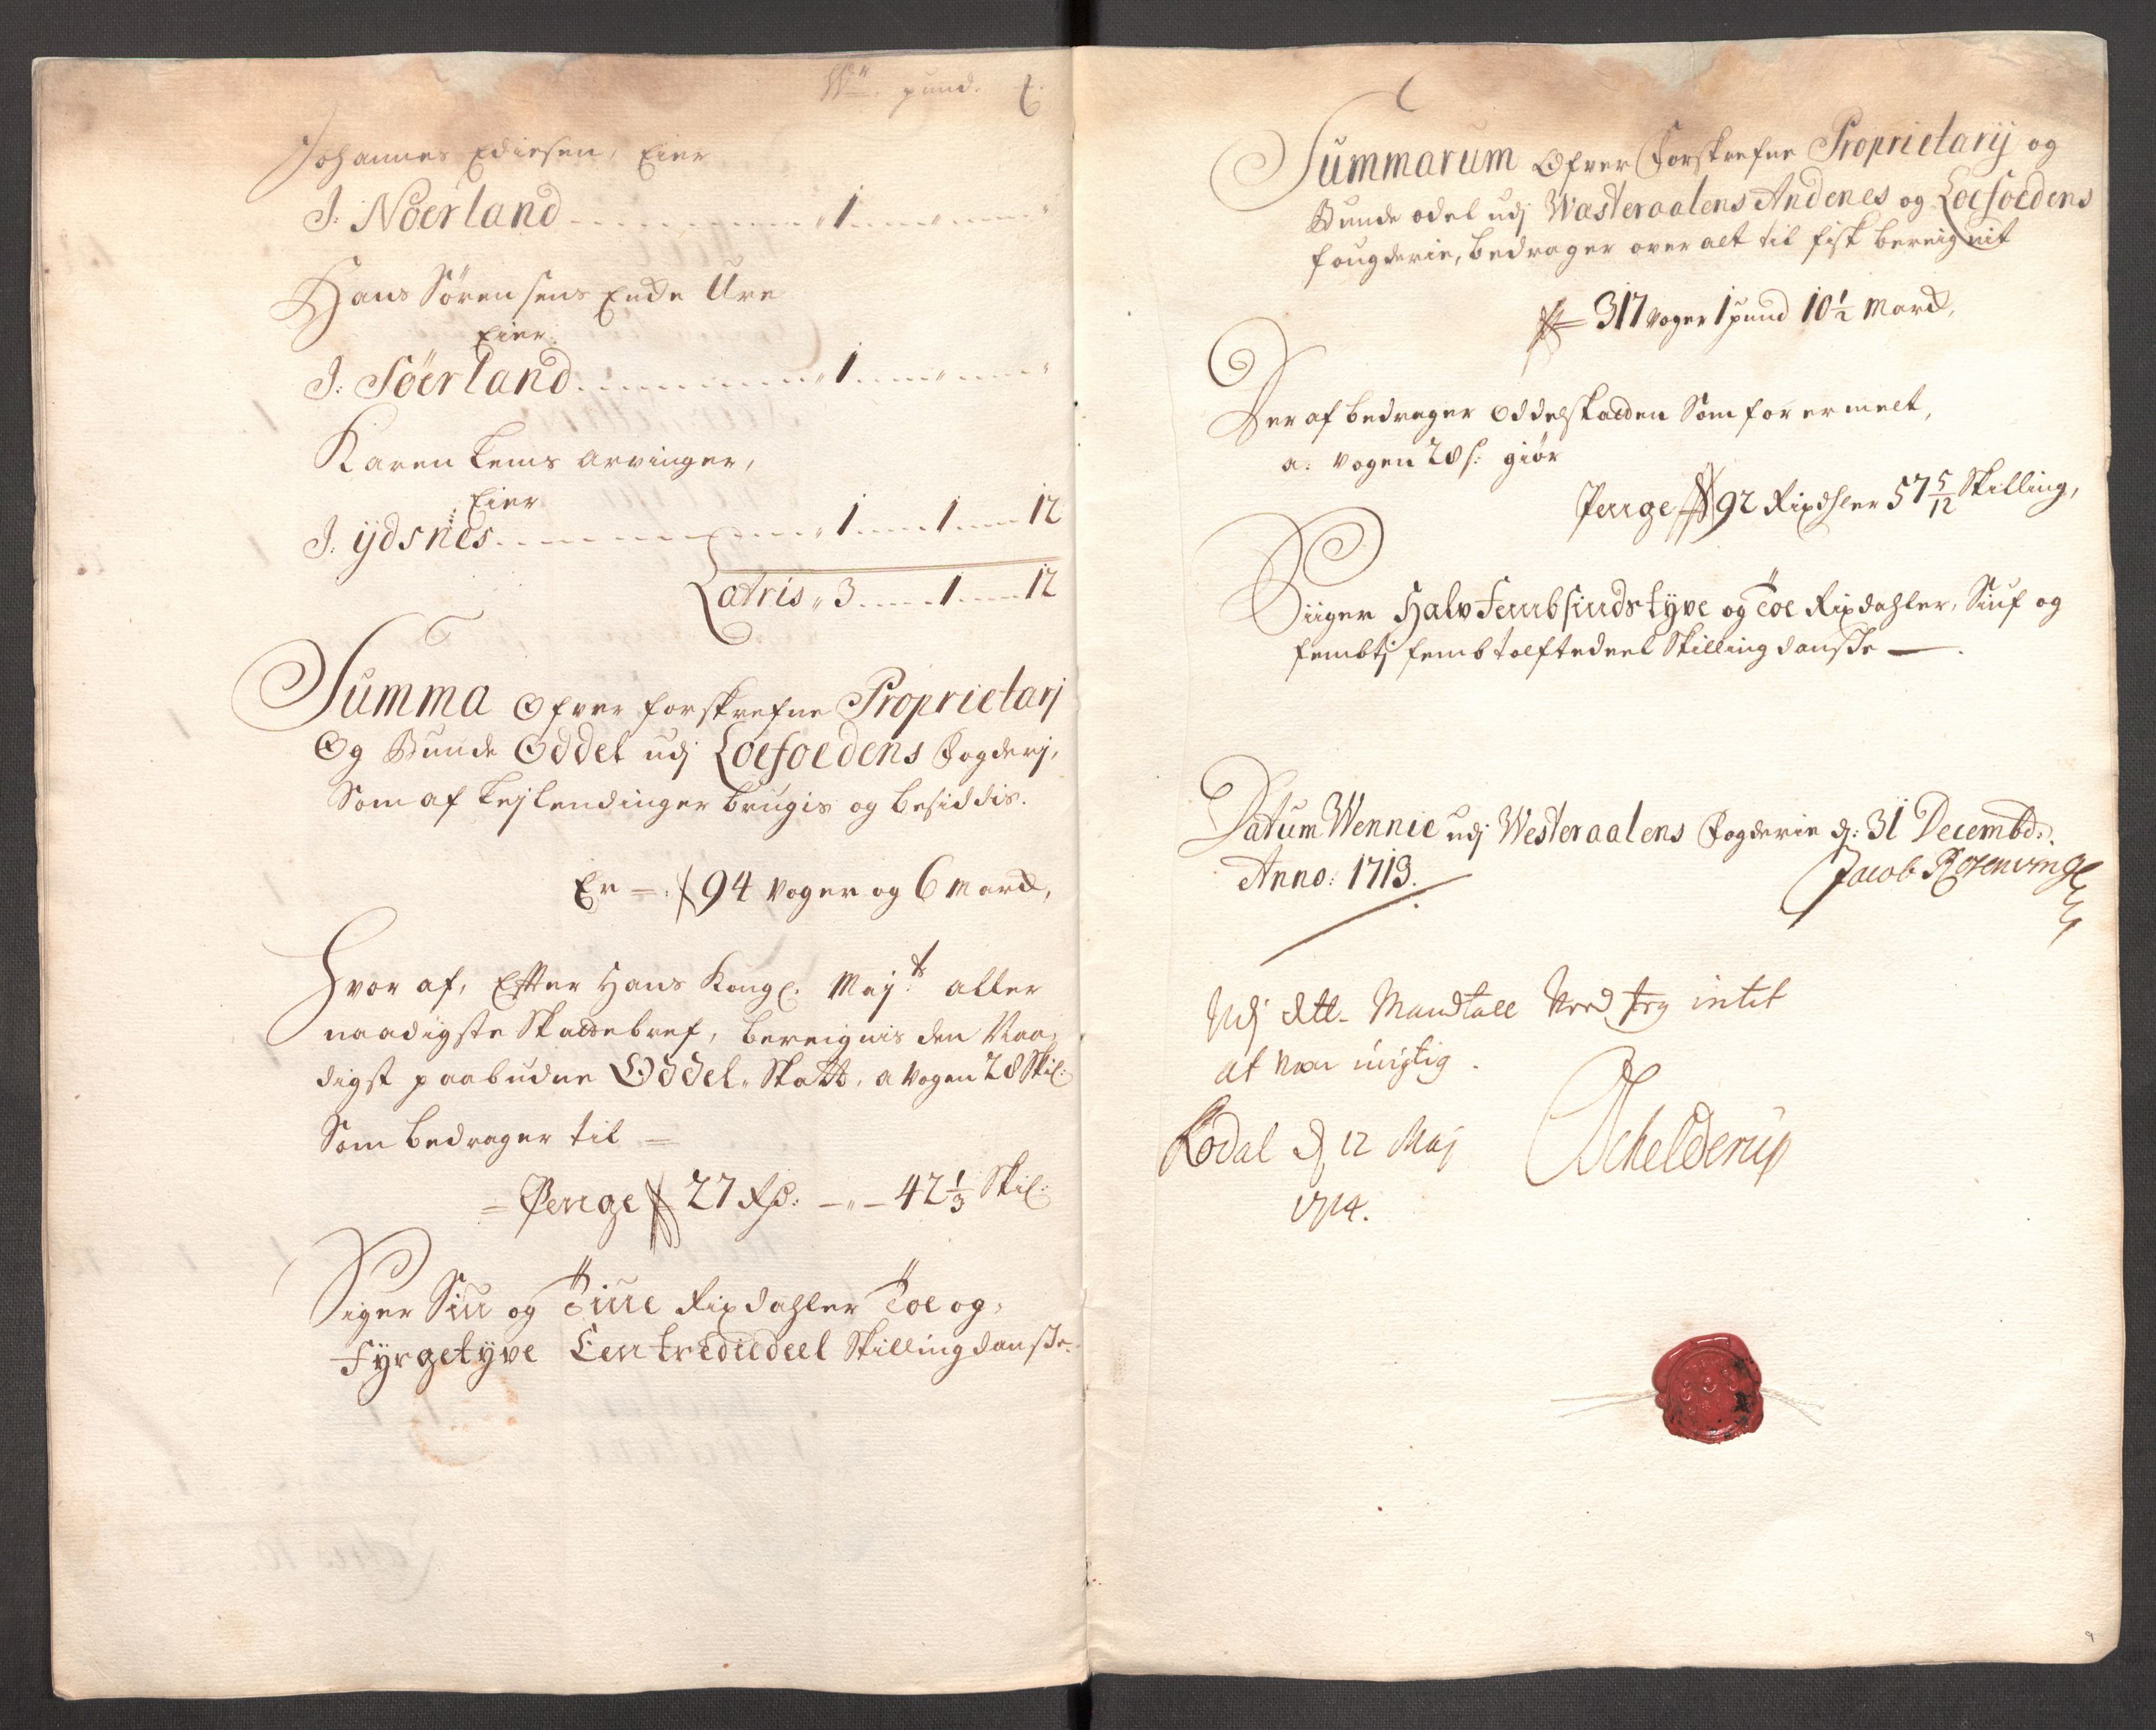 W: pund.
Johannes Ediesen, Eier
J: Nöerland 1
Hans Sörensens Ende Ure
Eier
J: Söerland 1
Karen Lems arvinger,
Eier
J: ÿdsnes 1 1 12
Latris 3 1 12
Summa Ofver forskrefne Proprietarj
Og Bunde Oddel udj Loefoedens Fogderj,
Som af Lejlendinger brugis og besiddis.
Er 94 voger og 6 march,
Hvor af, Efter Hans Kongl. Mayts aller
naadigste Skattebref, bereignis den Naa,
digst paabudne Oddel-Skatt, a Vogen 28 Skil:
Som bedrager til
Penge 27 Rd: 42 1/3 Skil:
Siger Siu og Tiuve Rixdahler Toe og,
Fÿrgetÿve Een trediedeel Skilling danske.
Summarum Ofver Forskrefne Proprietarij og
Bunde odel udj Wasteraalens Andenes og Loefoedens
fougderie, bedrager over alt til fisk bereignit
317 voger 1 pund 10 1/2 March,
Der af bedrager Oddelskatten Som for ermelt,
a: Vogen 28 s: giör
Penge 92 Rixdhler 57 5/12 Skilling,
Siiger Halv Fembsindstÿve og Toe Rixdahler, Siuf og
fembtj femb tolftedeel Skilling danske
Datum Wennie udj Westeraalens Fogderie d: 31 Decembd:
Anno: 1713.
Jacob Rosenvinge
Udj dtt. Mandtall Veed jeg intet
at vær urigtig.
Rödal d 12 Maj
Schelderup
1714.
9